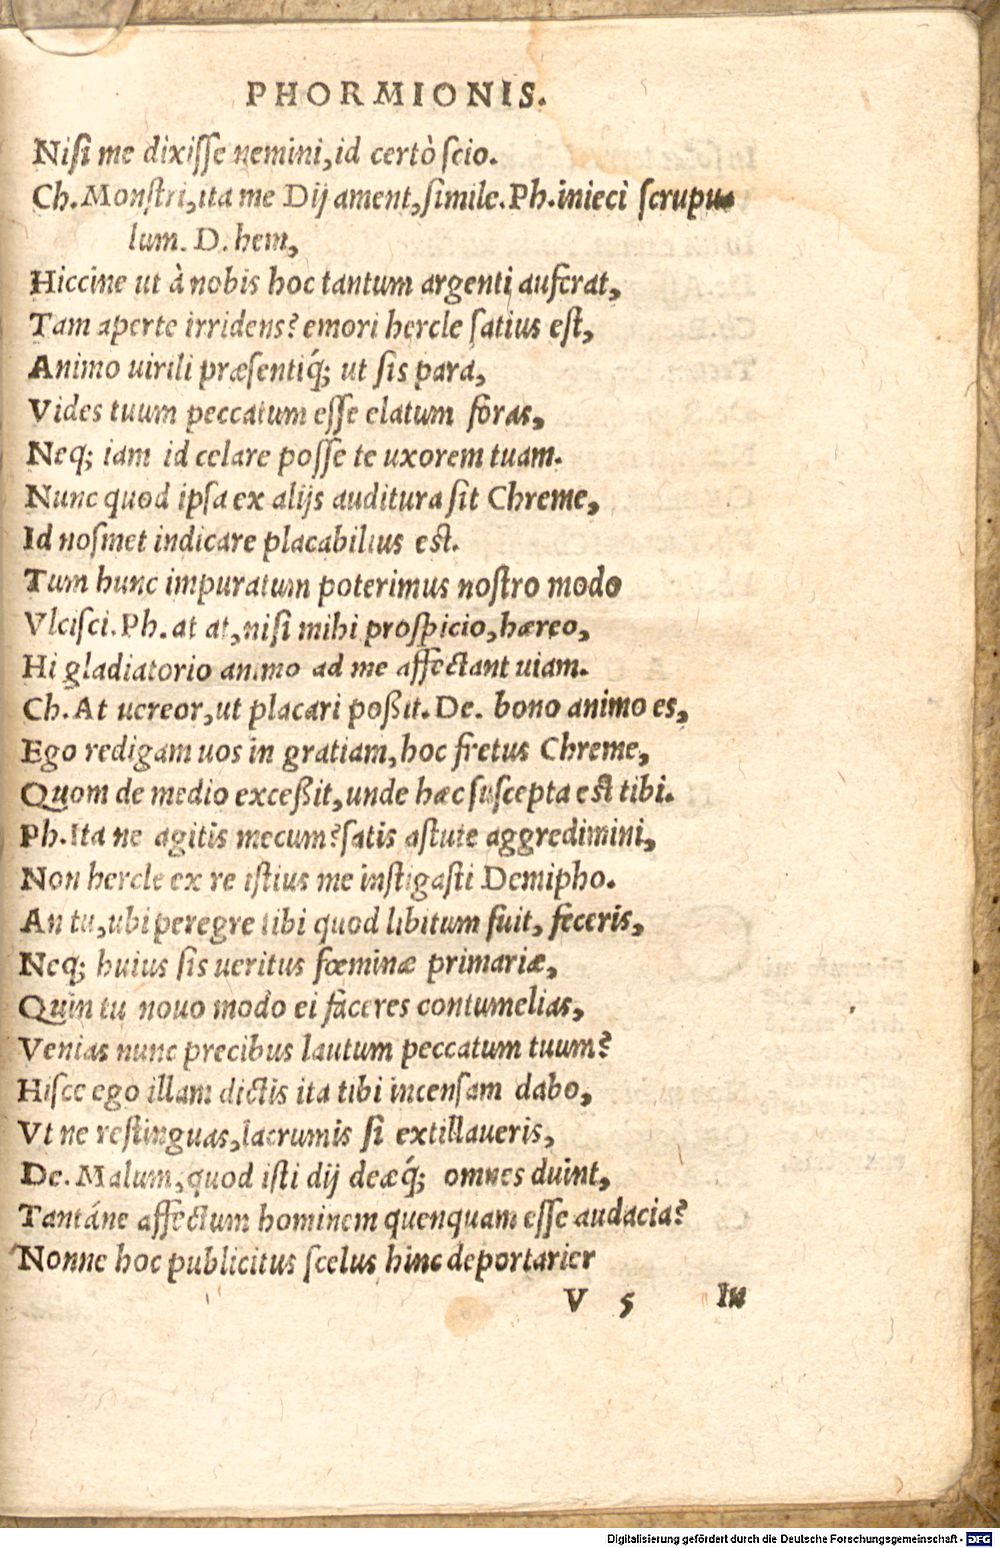 PHORMIONIS.
Nisi me dixisse nemini, id certò scio.
Ch. Monstri, ita me Dij ament, simile. Ph. inieci scrupu-
lum. D. hem,
Hiccine ut à nobis hoc tantum argenti auferat,
Tam aperte irridens? emori hercle satius est,
Animo uirili præsentiq́; ut sis para,
Vides tuum peccatum esse elatum foras,
Neq; iam id celare posse te uxorem tuam.
Nunc quod ipsa ex alijs auditura sit Chreme,
Id nosmet indicare placabilius est.
Tum hunc impuratum poterimus nostro modo
Vlcisci. Ph. at at, nisi mihi prospicio, hæreo,
Hi gladiatorio animo ad me affectant uiam.
Ch. At uereor, ut placari poßit. De. bono animo es,
Ego redigam uos in gratiam, hoc fretus Chreme,
Quom de medio exceßit, unde hæc suscepta est tibi.
Ph. Ita ne agitis mecum? satis astute aggredimini,
Non hercle ex re istius me instigasti Demipho.
An tu, ubi peregre tibi quod libitum fuit, feceris,
Neq; huius sis ueritus fœminæ primariæ,
Quin tu nouo modo ei faceres contumelias,
Venias nunc precibus lautum peccatum tuum?
Hisce ego illam dictis ita tibi incensam dabo,
Vt ne restinguas, lacrumis si extillaueris,
De. Malum, quod isti dij deæq́; omnes duint,
Tantáne affectum hominem quenquam esse audacia?
Nonne hoc publicitus scelus hinc deportarier
V 5 In
Digitalisierung gefördert durch die Deutsche Forschungsgemeinschaft - DFG